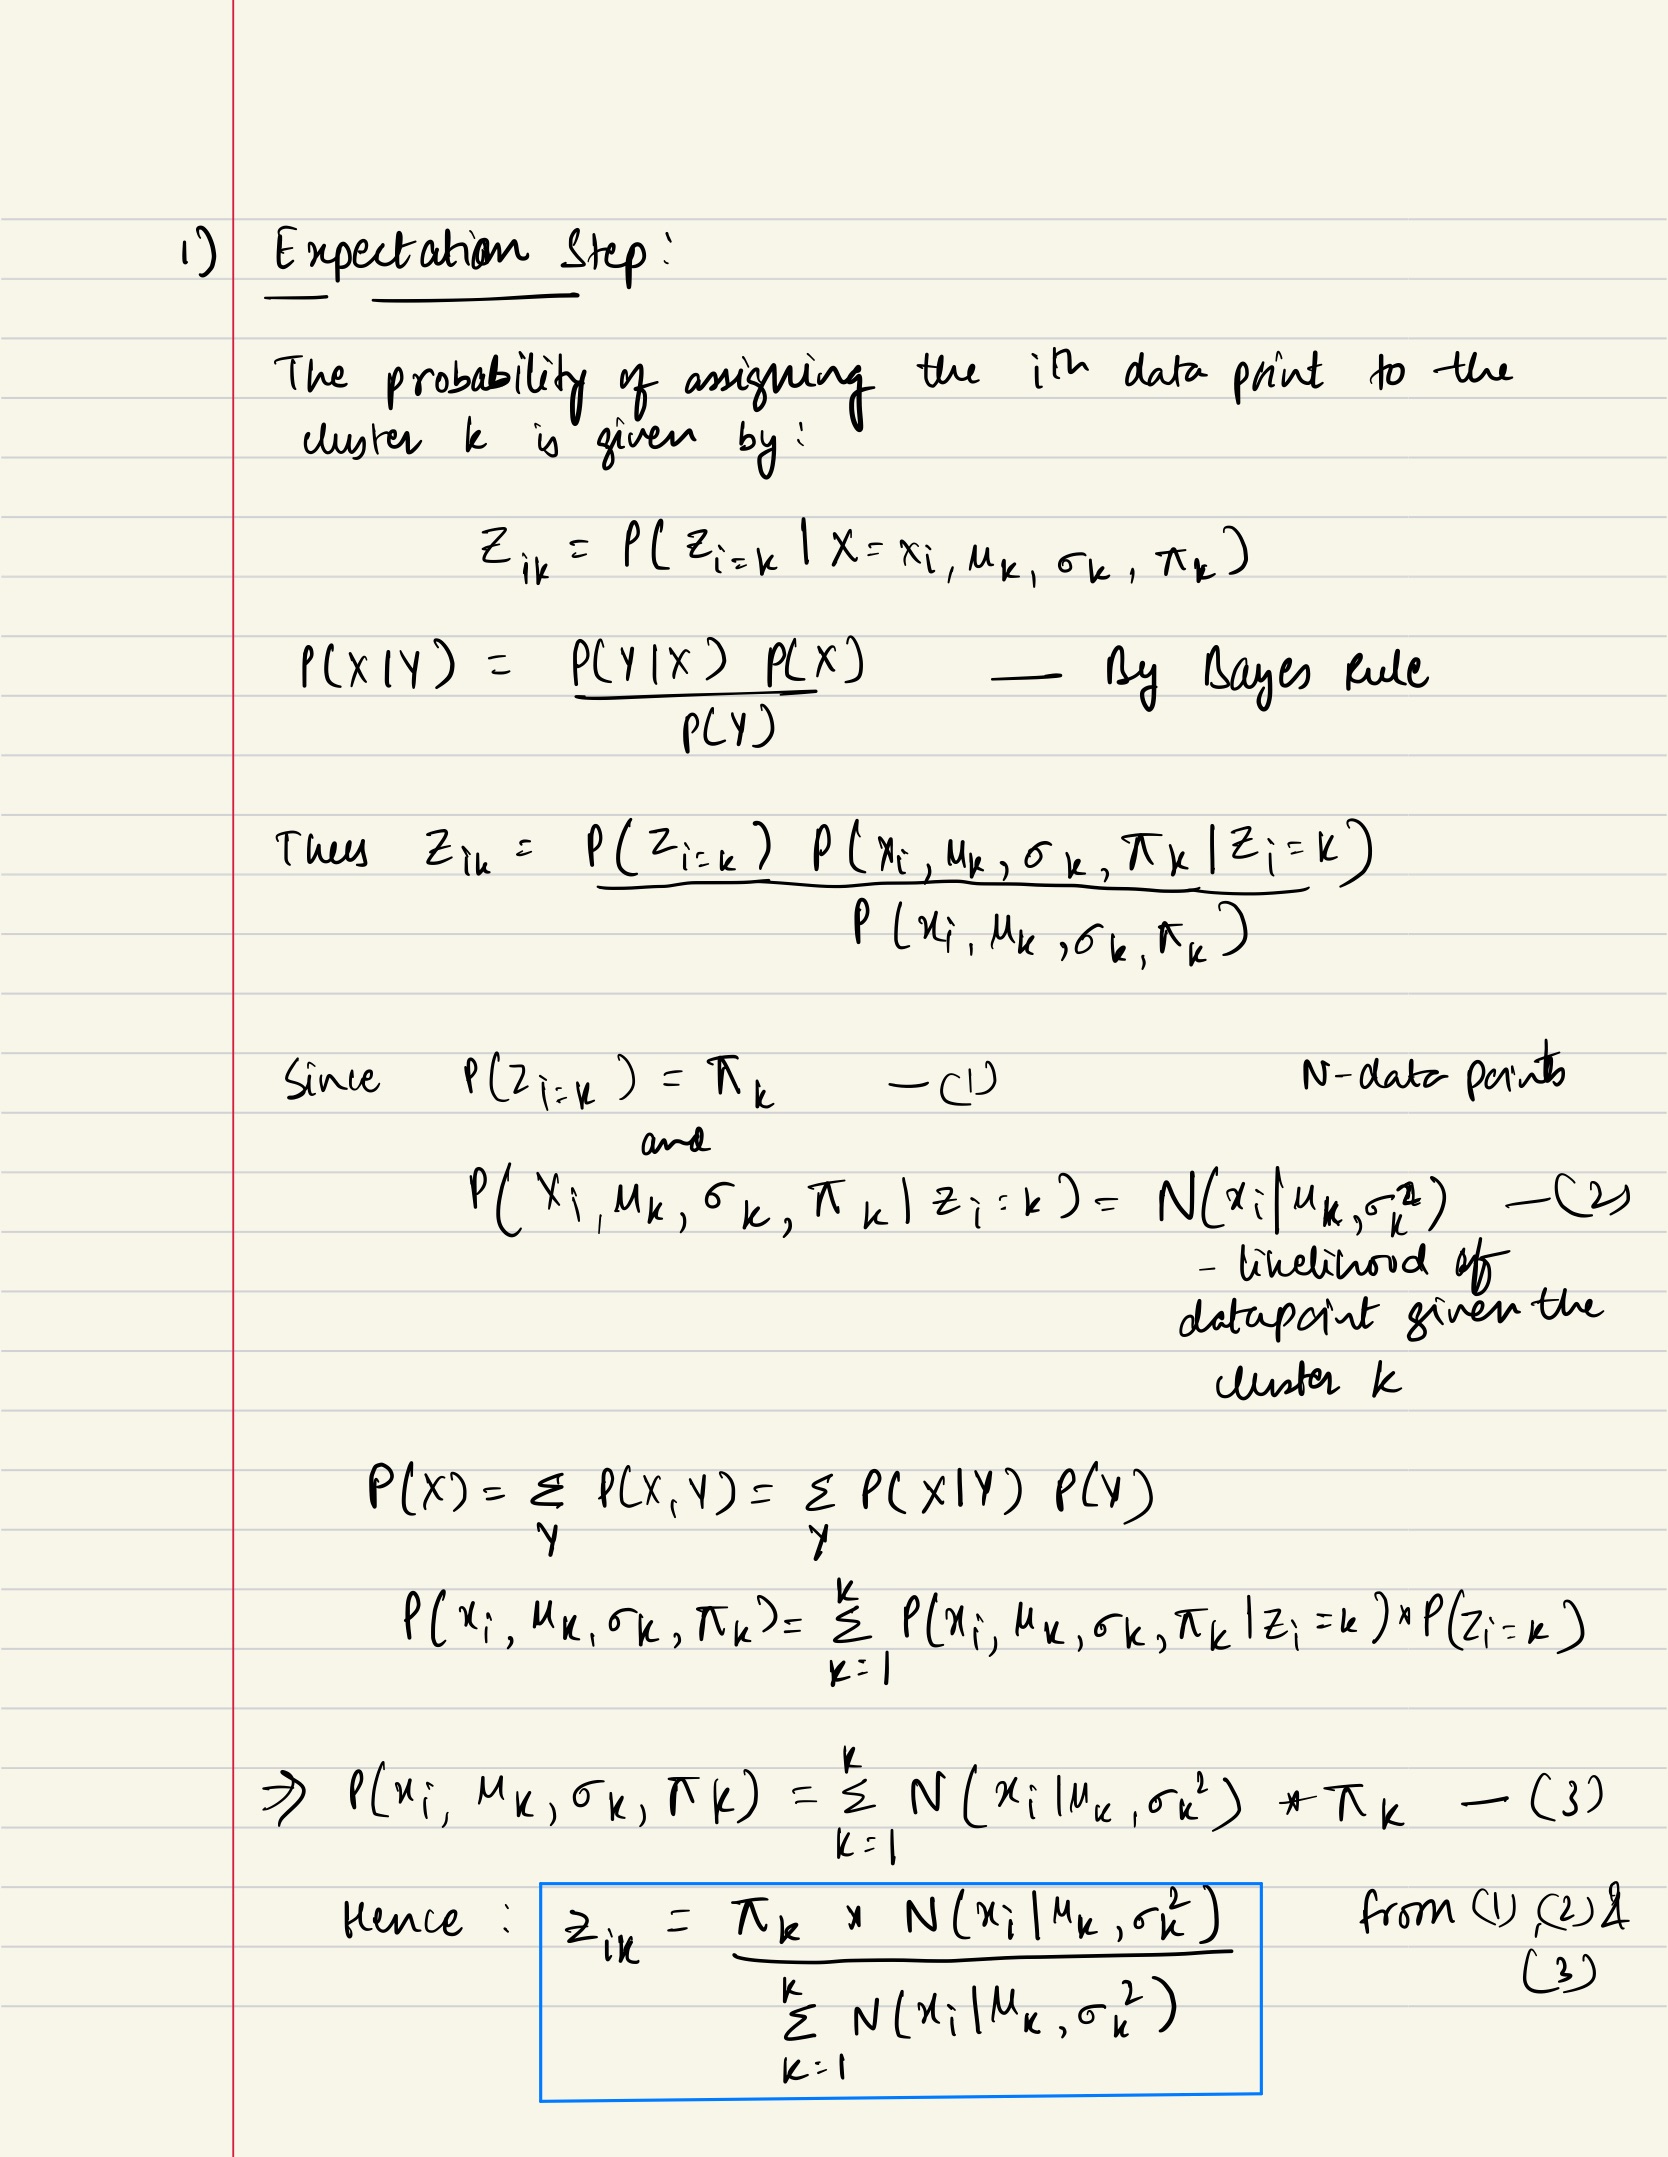 1) Expectation Step:
The probability of assigning the ith data point to the
cluster k is given by:
Z_ik = P( Z_i=k | X = x_i, μ_k, σ_k, π_k )
P(X|Y) = P(Y|X) P(X) / P(Y) — By Bayes Rule
Thus Z_ik = P(Z_i=k) P(x_i, μ_k, σ_k, π_k | Z_i=k) / P(x_i, μ_k, σ_k, π_k)
Since P(Z_i=k) = π_k —(1) N-data points
and
P( X_i, μ_k, σ_k, π_k | z_i=k ) = N(x_i | μ_k, σ_k²) —(2)
- likelihood of
datapoint given the
cluster k
P(X) = Σ_Y P(X,Y) = Σ_Y P(X|Y) P(Y)
P(x_i, μ_k, σ_k, π_k) = Σ_{k=1}^{k} P(x_i, μ_k, σ_k, π_k | z_i=k) * P(z_i=k)
⇒ P(x_i, μ_k, σ_k, π_k) = Σ_{k=1}^{k} N(x_i | μ_k, σ_k²) * π_k — (3)
Hence : z_ik = π_k * N(x_i | μ_k, σ_k²) / Σ_{k=1}^{k} N(x_i | μ_k, σ_k²) from (1), (2) &
(3)